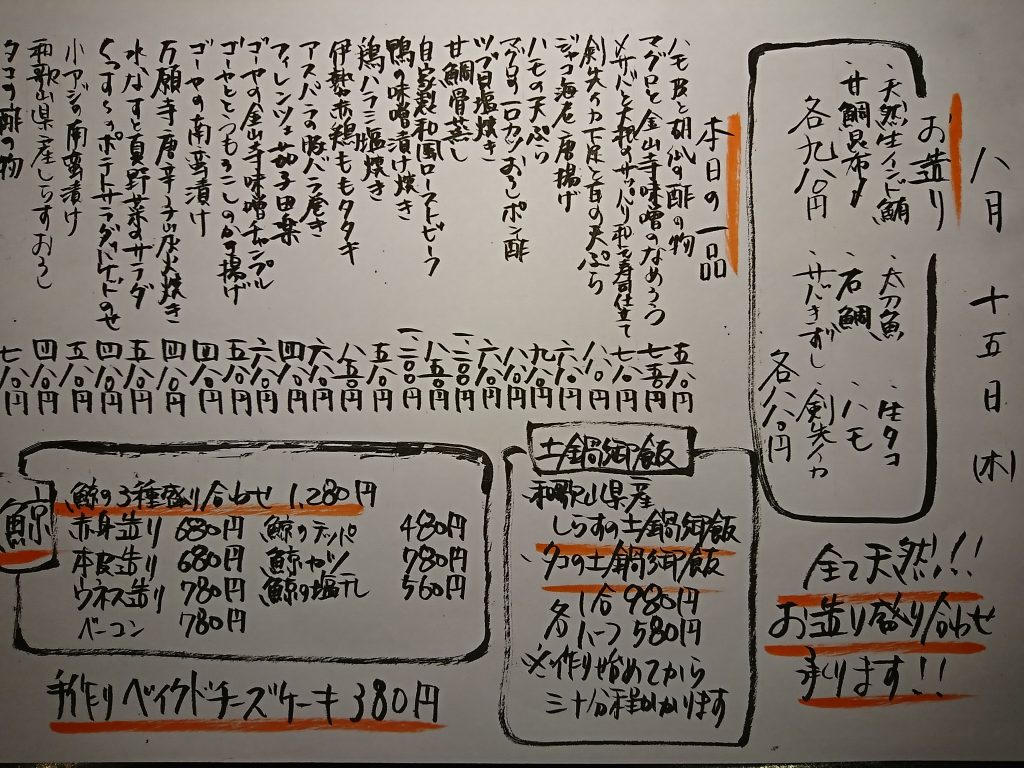 八月十五日(木)
お造り
・天然生インド鮪 ・太刀魚 ・生タコ
・甘鯛昆布〆 ・石鯛 ・ハモ
各九八〇円 ・サバきずし ・剣先イカ
各八八〇円
全て天然!!
お造り盛り合わせ
承ります!!
本日の一品
ハモ皮と胡瓜の酢の物 五八〇円
マグロと金山寺味噌のなめろう 七五〇円
〆サバと大根のサッパリ和え寿司仕立て 七八〇円
剣先イカ下足と百合の天ぷら 八八〇円
ジャコ海老唐揚げ 六八〇円
ハモの天ぷら 九八〇円
マグロの一口カツおろしポン酢 八八〇円
ツブ貝塩焼き 六八〇円
甘鯛骨蒸し 一二〇〇円
自家製和風ローストビーフ 八五〇円
鴨の味噌漬け焼き 一二〇〇円
鶏ハラミ塩焼き 五八〇円
伊勢赤鶏ももタタキ 八五〇円
アスパラの豚バラ巻き 六八〇円
フィレンツェ茄子田楽 四八〇円
ゴーヤの金山寺味噌チャンプル 六八〇円
ゴーヤととうもろこしのかき揚げ 五八〇円
ゴーヤの南蛮漬け 四八〇円
万願寺唐辛子山水火焼き 四八〇円
水なすと真野菜のサラダ 五八〇円
くんすくポテトサラダバケットのせ 四八〇円
小アジの南蛮漬け 五八〇円
和歌山県産しらすおろし 四八〇円
タコの酢の物 七八〇円
土鍋御飯
和歌山県産
しらすの土鍋御飯
タコの土鍋御飯
各 1合 980円
ハーフ 580円
※作り始めてから
三十分程かかります
鯨
鯨の3種盛り合わせ 1,280円
赤身造り 680円 鯨のテッパ 480円
本皮造り 680円 鯨カツ 780円
ウネス造り 780円 鯨の塩干し 560円
ベーコン 780円
手作りベイクドチーズケーキ 380円